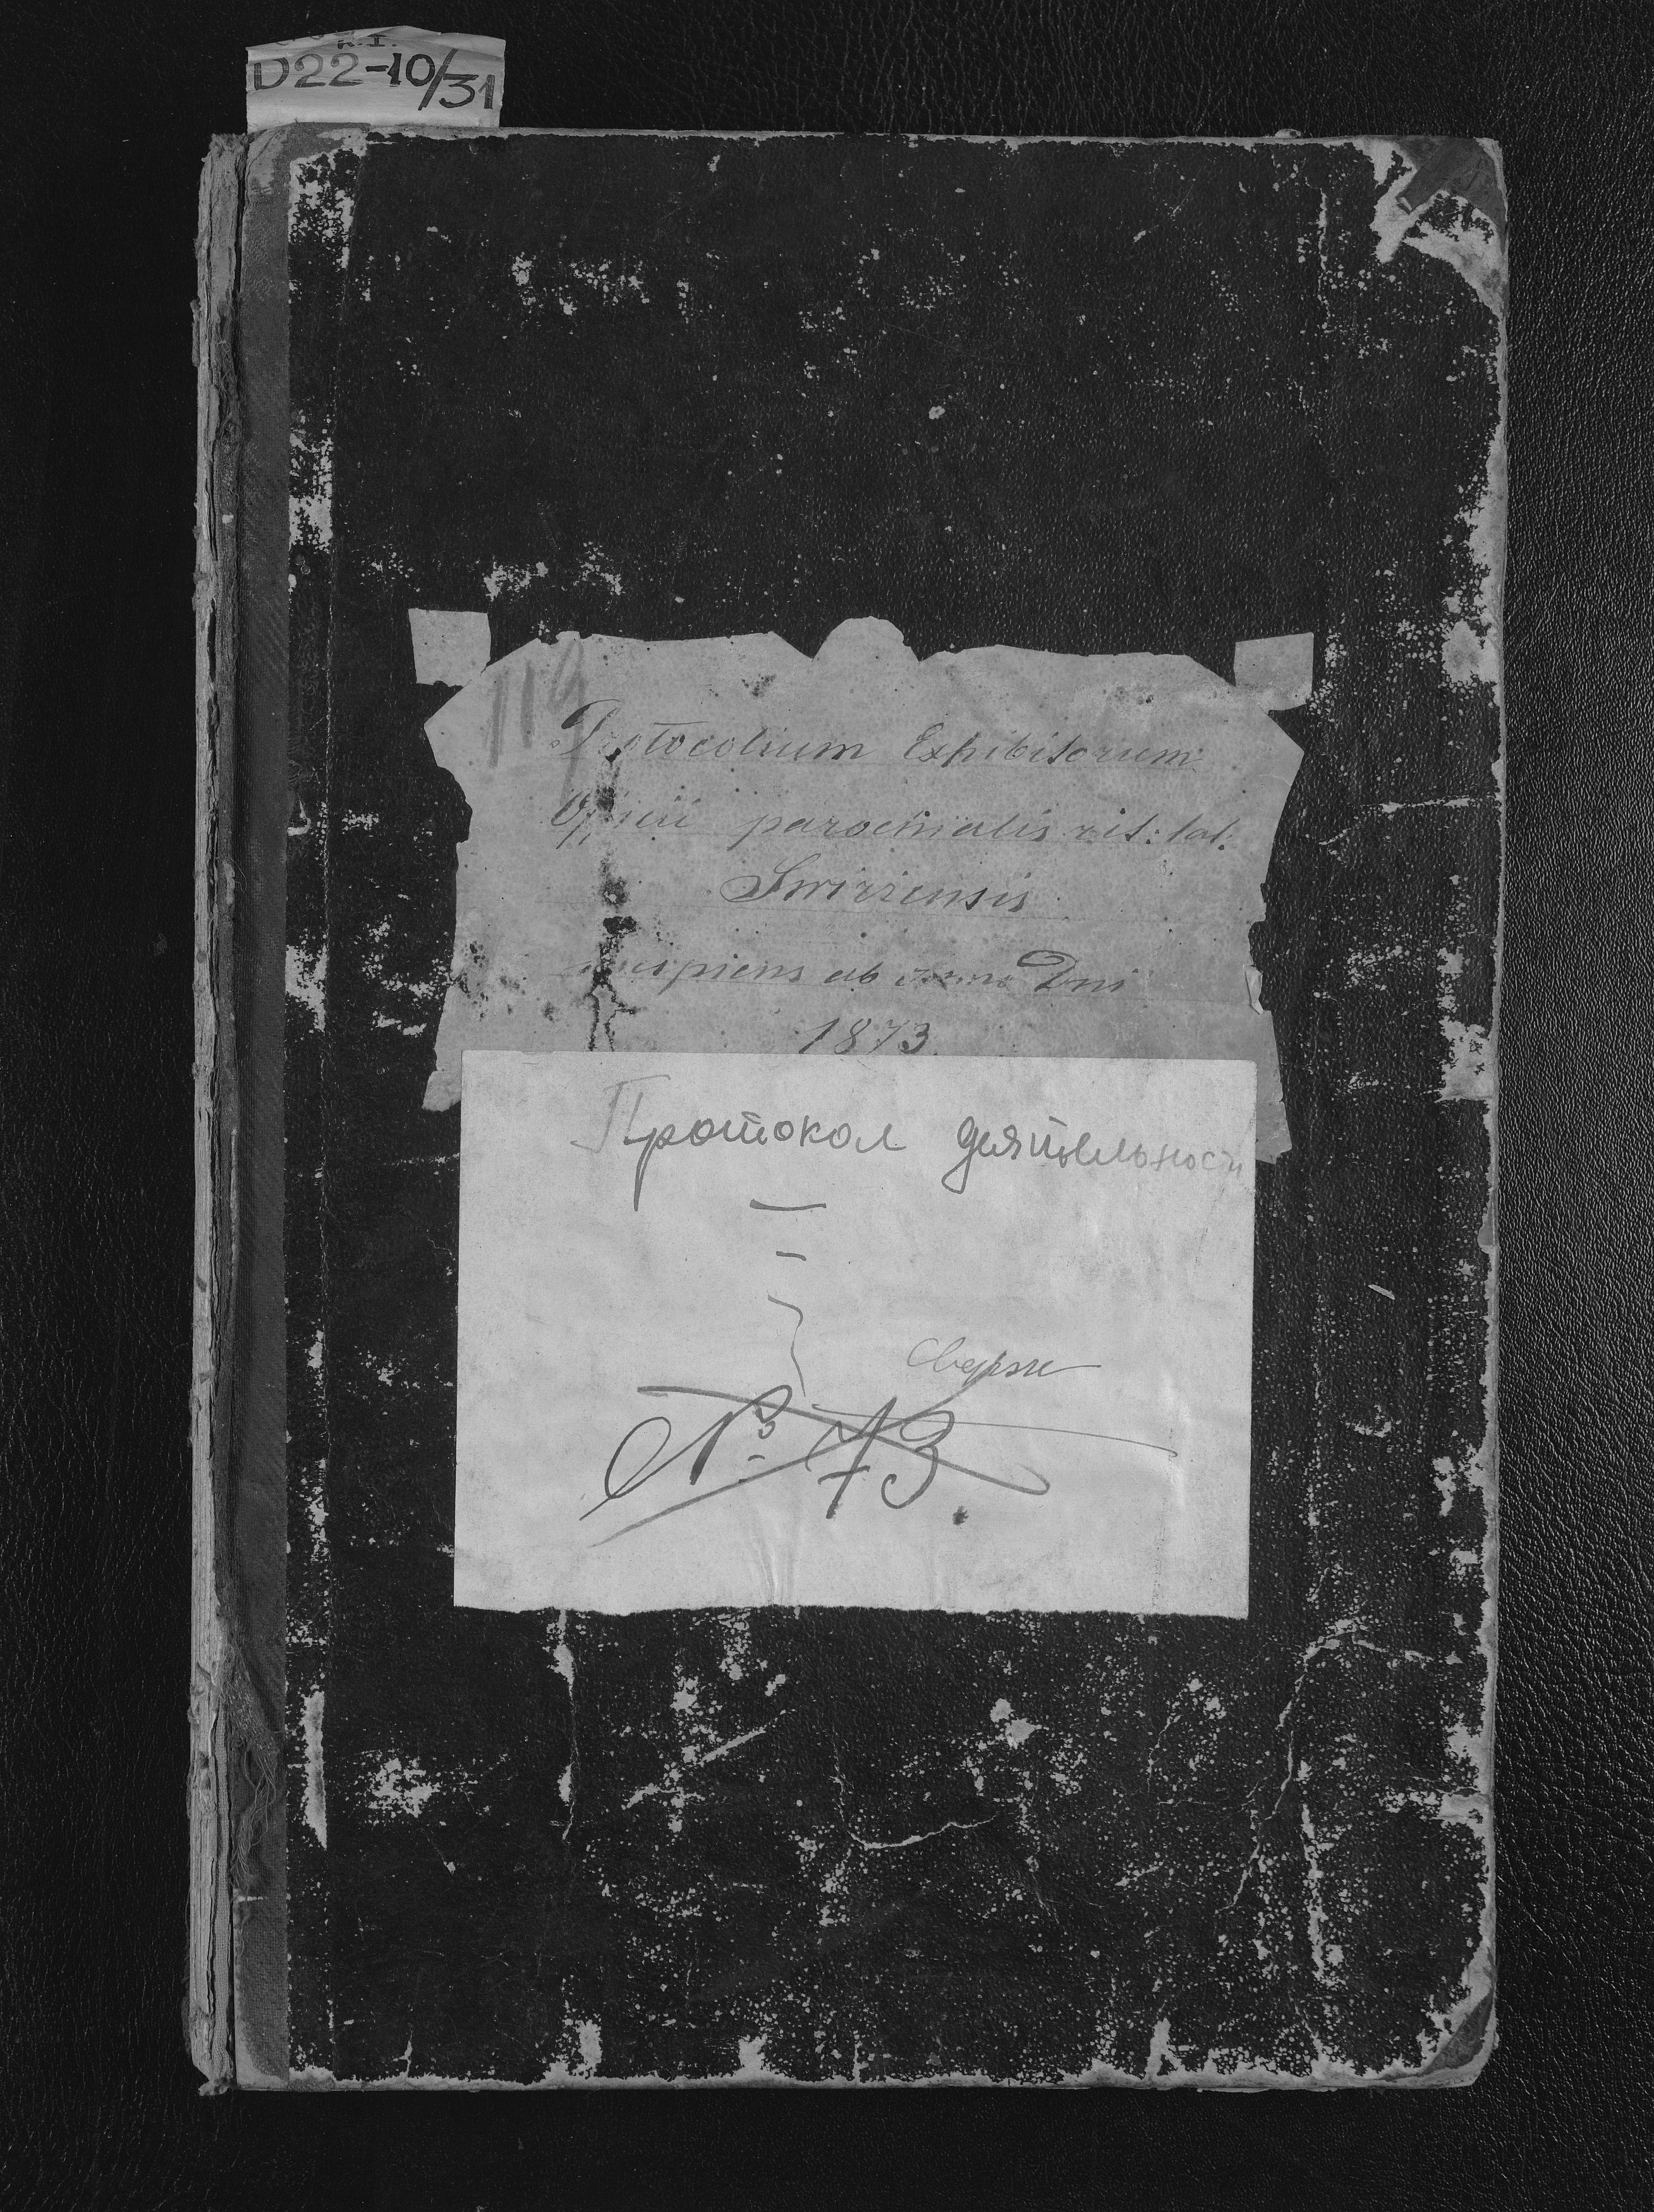 R.I.
D22-10/31
119
Protocollum Exhibitorum
Officii parochialis rit: lat:
Swirzensis
incipiens ab anno Dni
1873.
Протокол деятельности
№ 73.